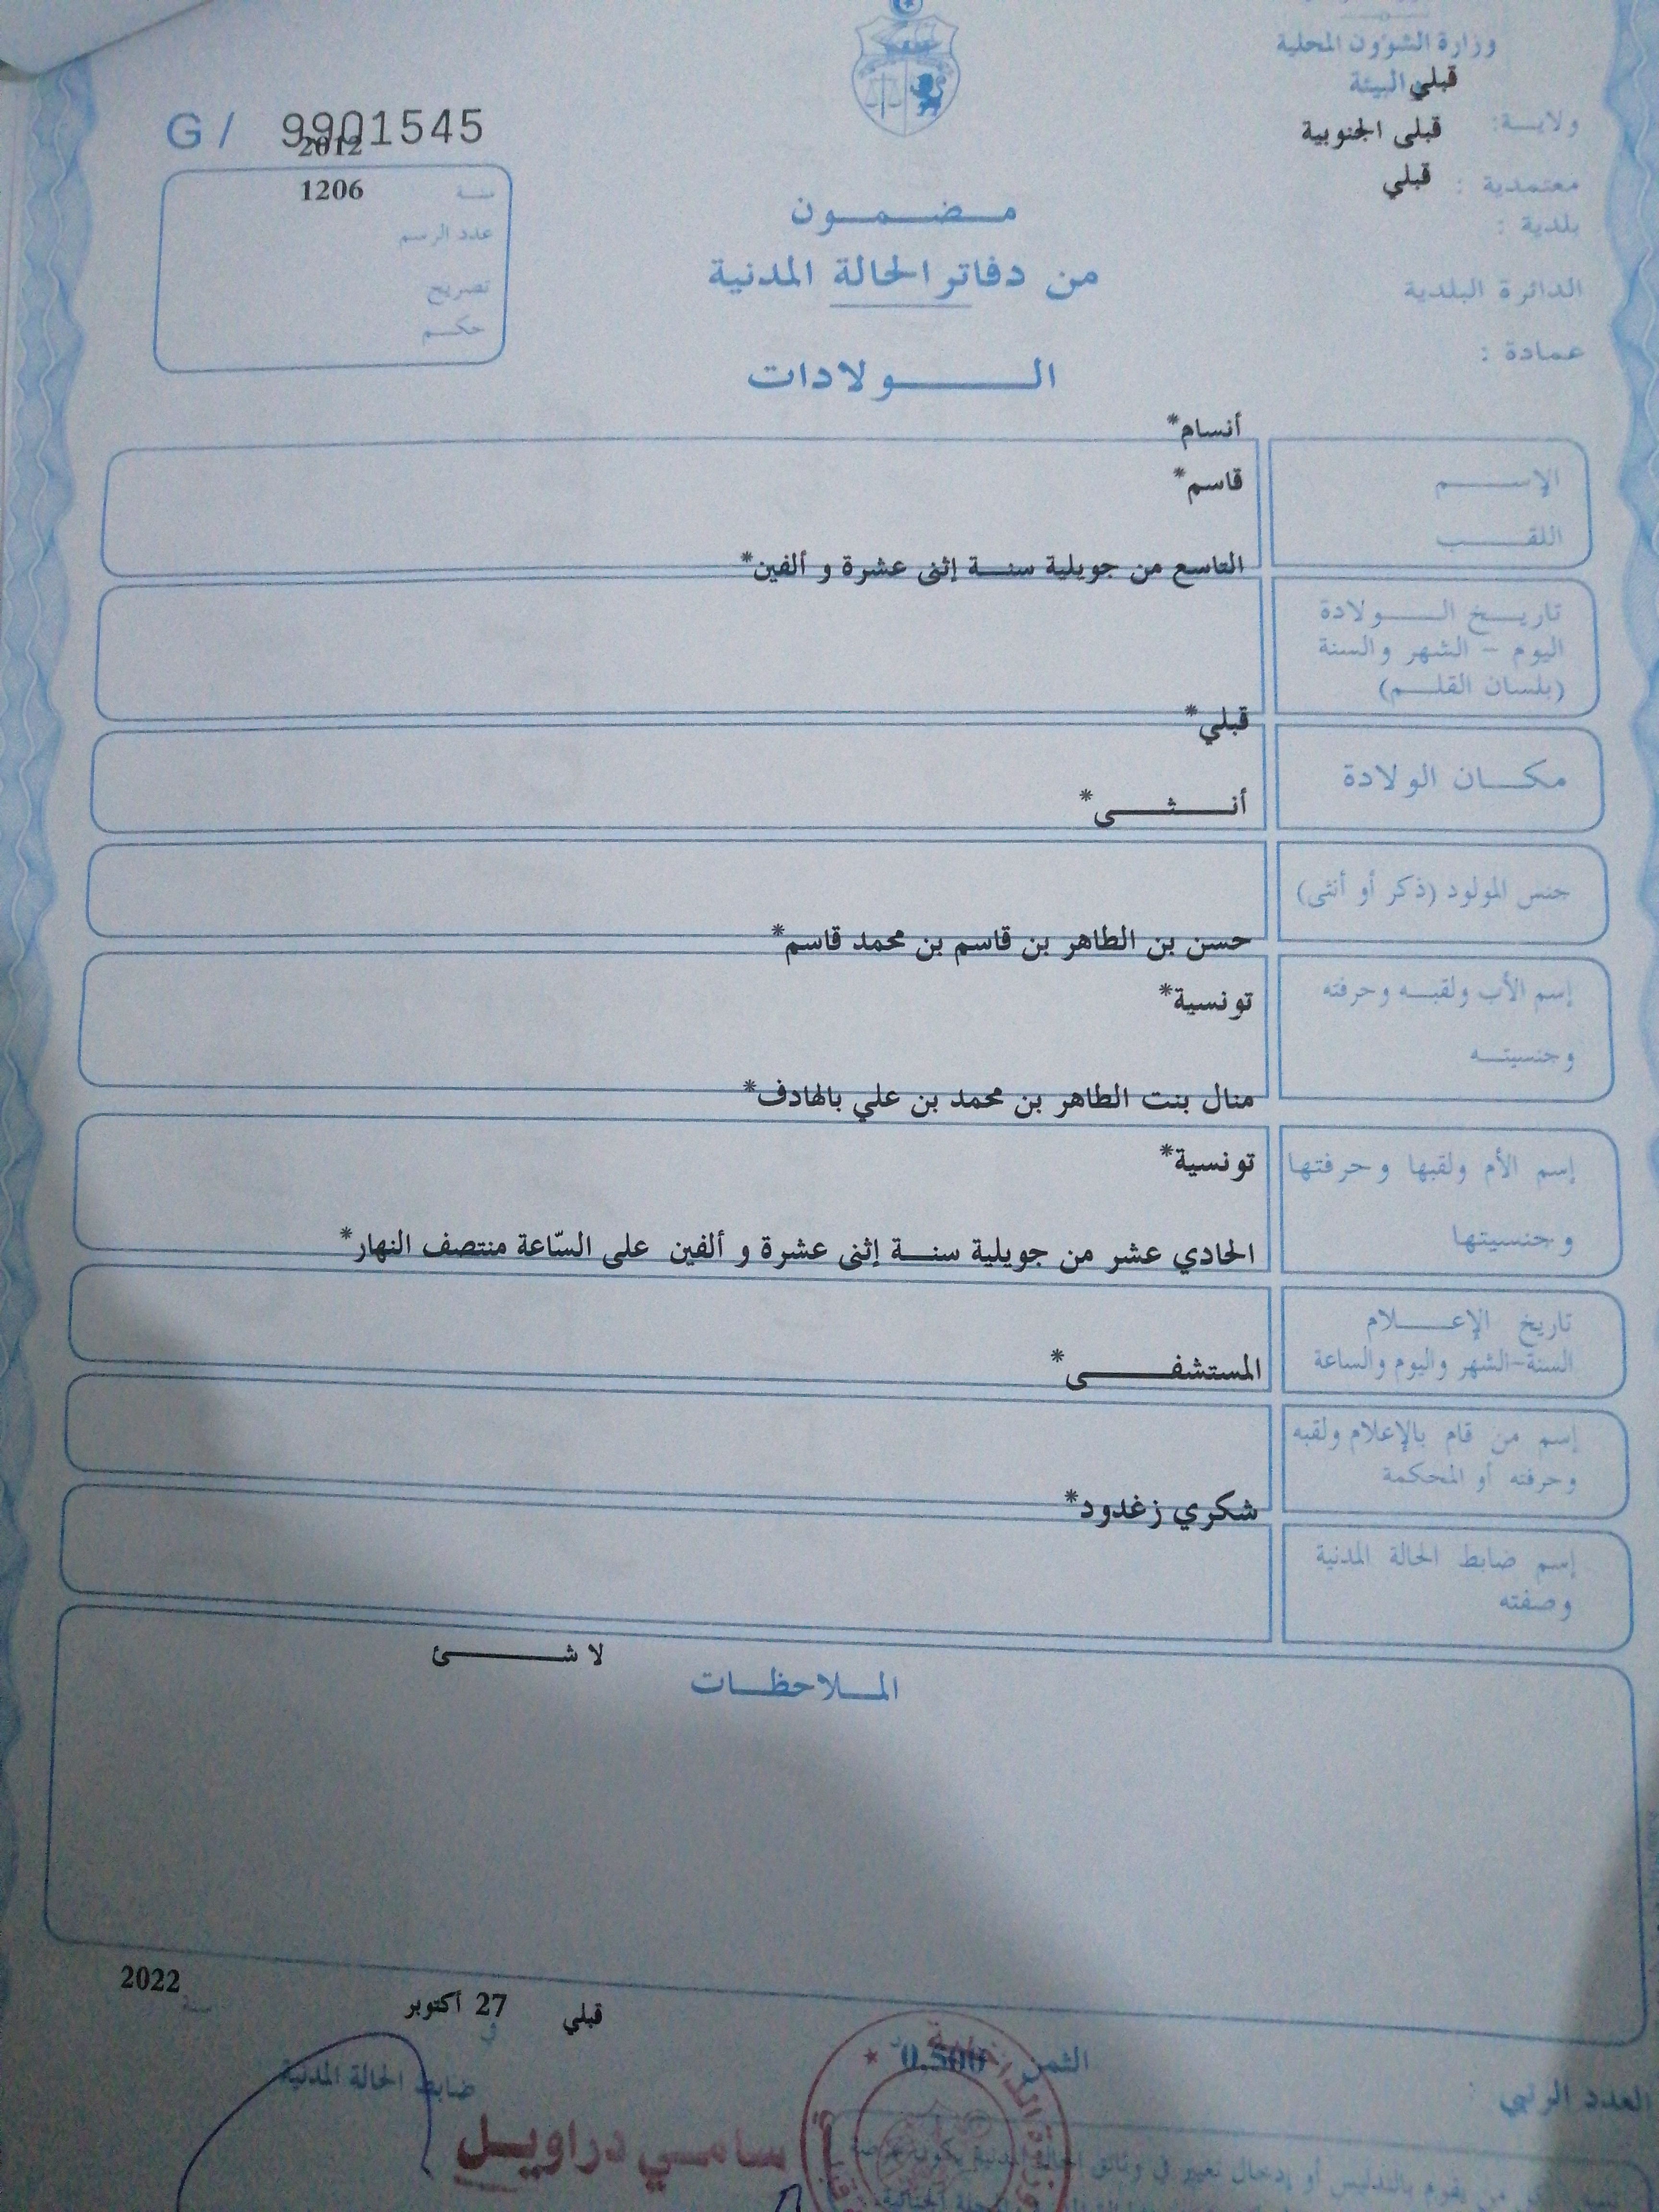 وزارة الشؤون المحلية
والبيئة قبلي
ولايـــة: قبلى الجنوبية
معتمدية : قبلي
بلدية :
الدائرة البلدية
عمادة :
G/ 9901545
2012
سنة 1206
عدد الرسم
تصريح
حكم
مضمون
من دفاتر الحالة المدنية
الولادات
أنسام*
الإسم قاسم*
اللقب
التاسع من جويلية سنة إثنى عشرة و ألفين*
تاريخ الولادة
اليوم - الشهر والسنة
(بلسان القلم)
قبلي*
مكان الولادة
أنثى*
جنس المولود (ذكر أو أنثى)
حسن بن الطاهر بن قاسم بن محمد قاسم*
إسم الأب ولقبه وحرفته تونسية*
وجنسيته
منال بنت الطاهر بن محمد بن علي بالهادف*
إسم الأم ولقبها وحرفتها تونسية*
وجنسيتها
الحادي عشر من جويلية سنة إثنى عشرة و ألفين على السّاعة منتصف النهار*
تاريخ الإعلام
السنة-الشهر واليوم والساعة
المستشفى*
إسم من قام بالإعلام ولقبه
وحرفته أو المحكمة
شكري زغدود*
إسم ضابط الحالة المدنية
وصفته
لا شئ
الملاحظات
قبلي 27 أكتوبر 2022
في سنة
الثمن 0.500
ضابط الحالة المدنية
العدد الرتبي :
سامي دراويل
من يقوم بالتدليس أو إدخال تغيير في وثائق الحالة المدنية يكون عرضة